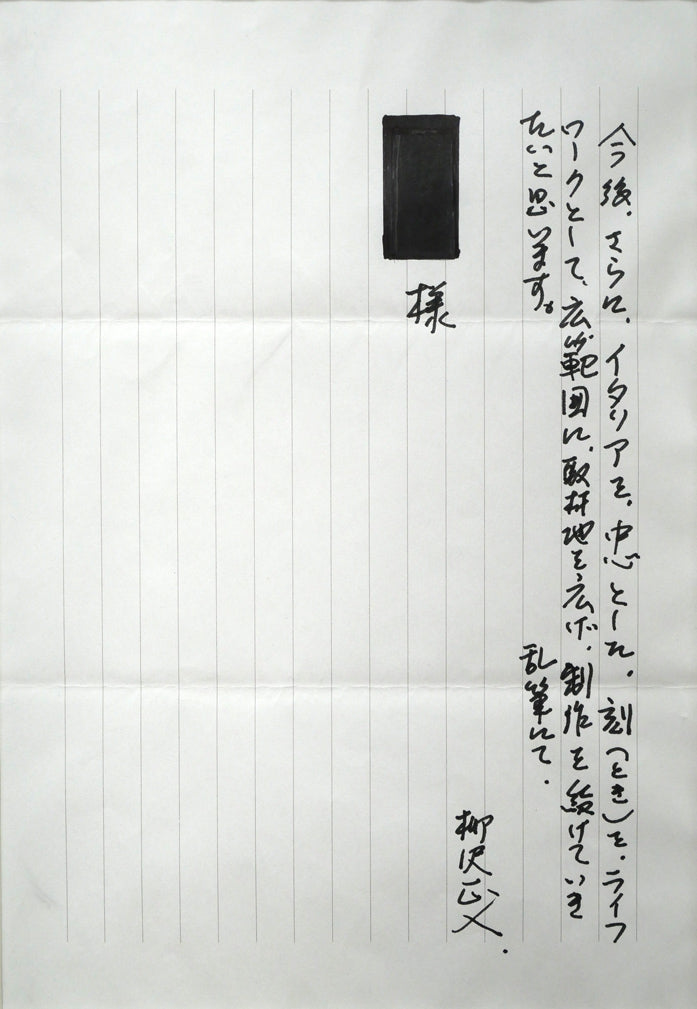 今後、さらに、イタリアを、中心とした、刻(とき)を、ライフ
ワークとして、広範囲に、取材地を広げ、制作を続けていき
たいと思います。
乱筆にて.
柳沢正人.
様